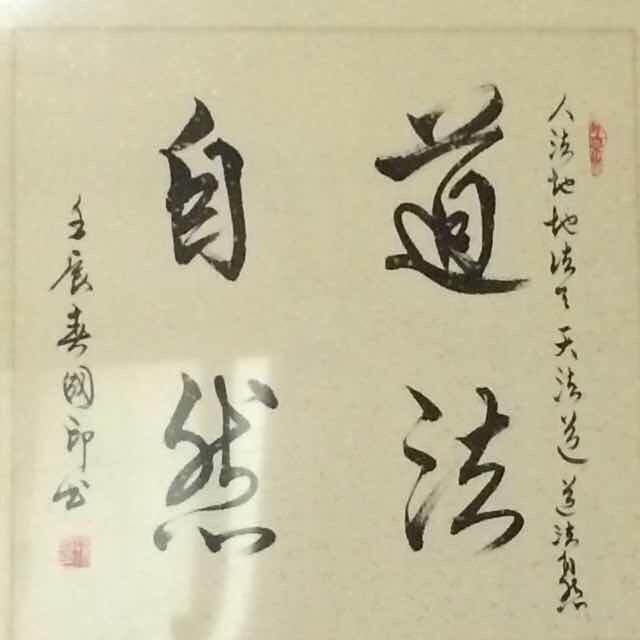 人法地地法天天法道道法自然
道法
自然
壬辰春國印书